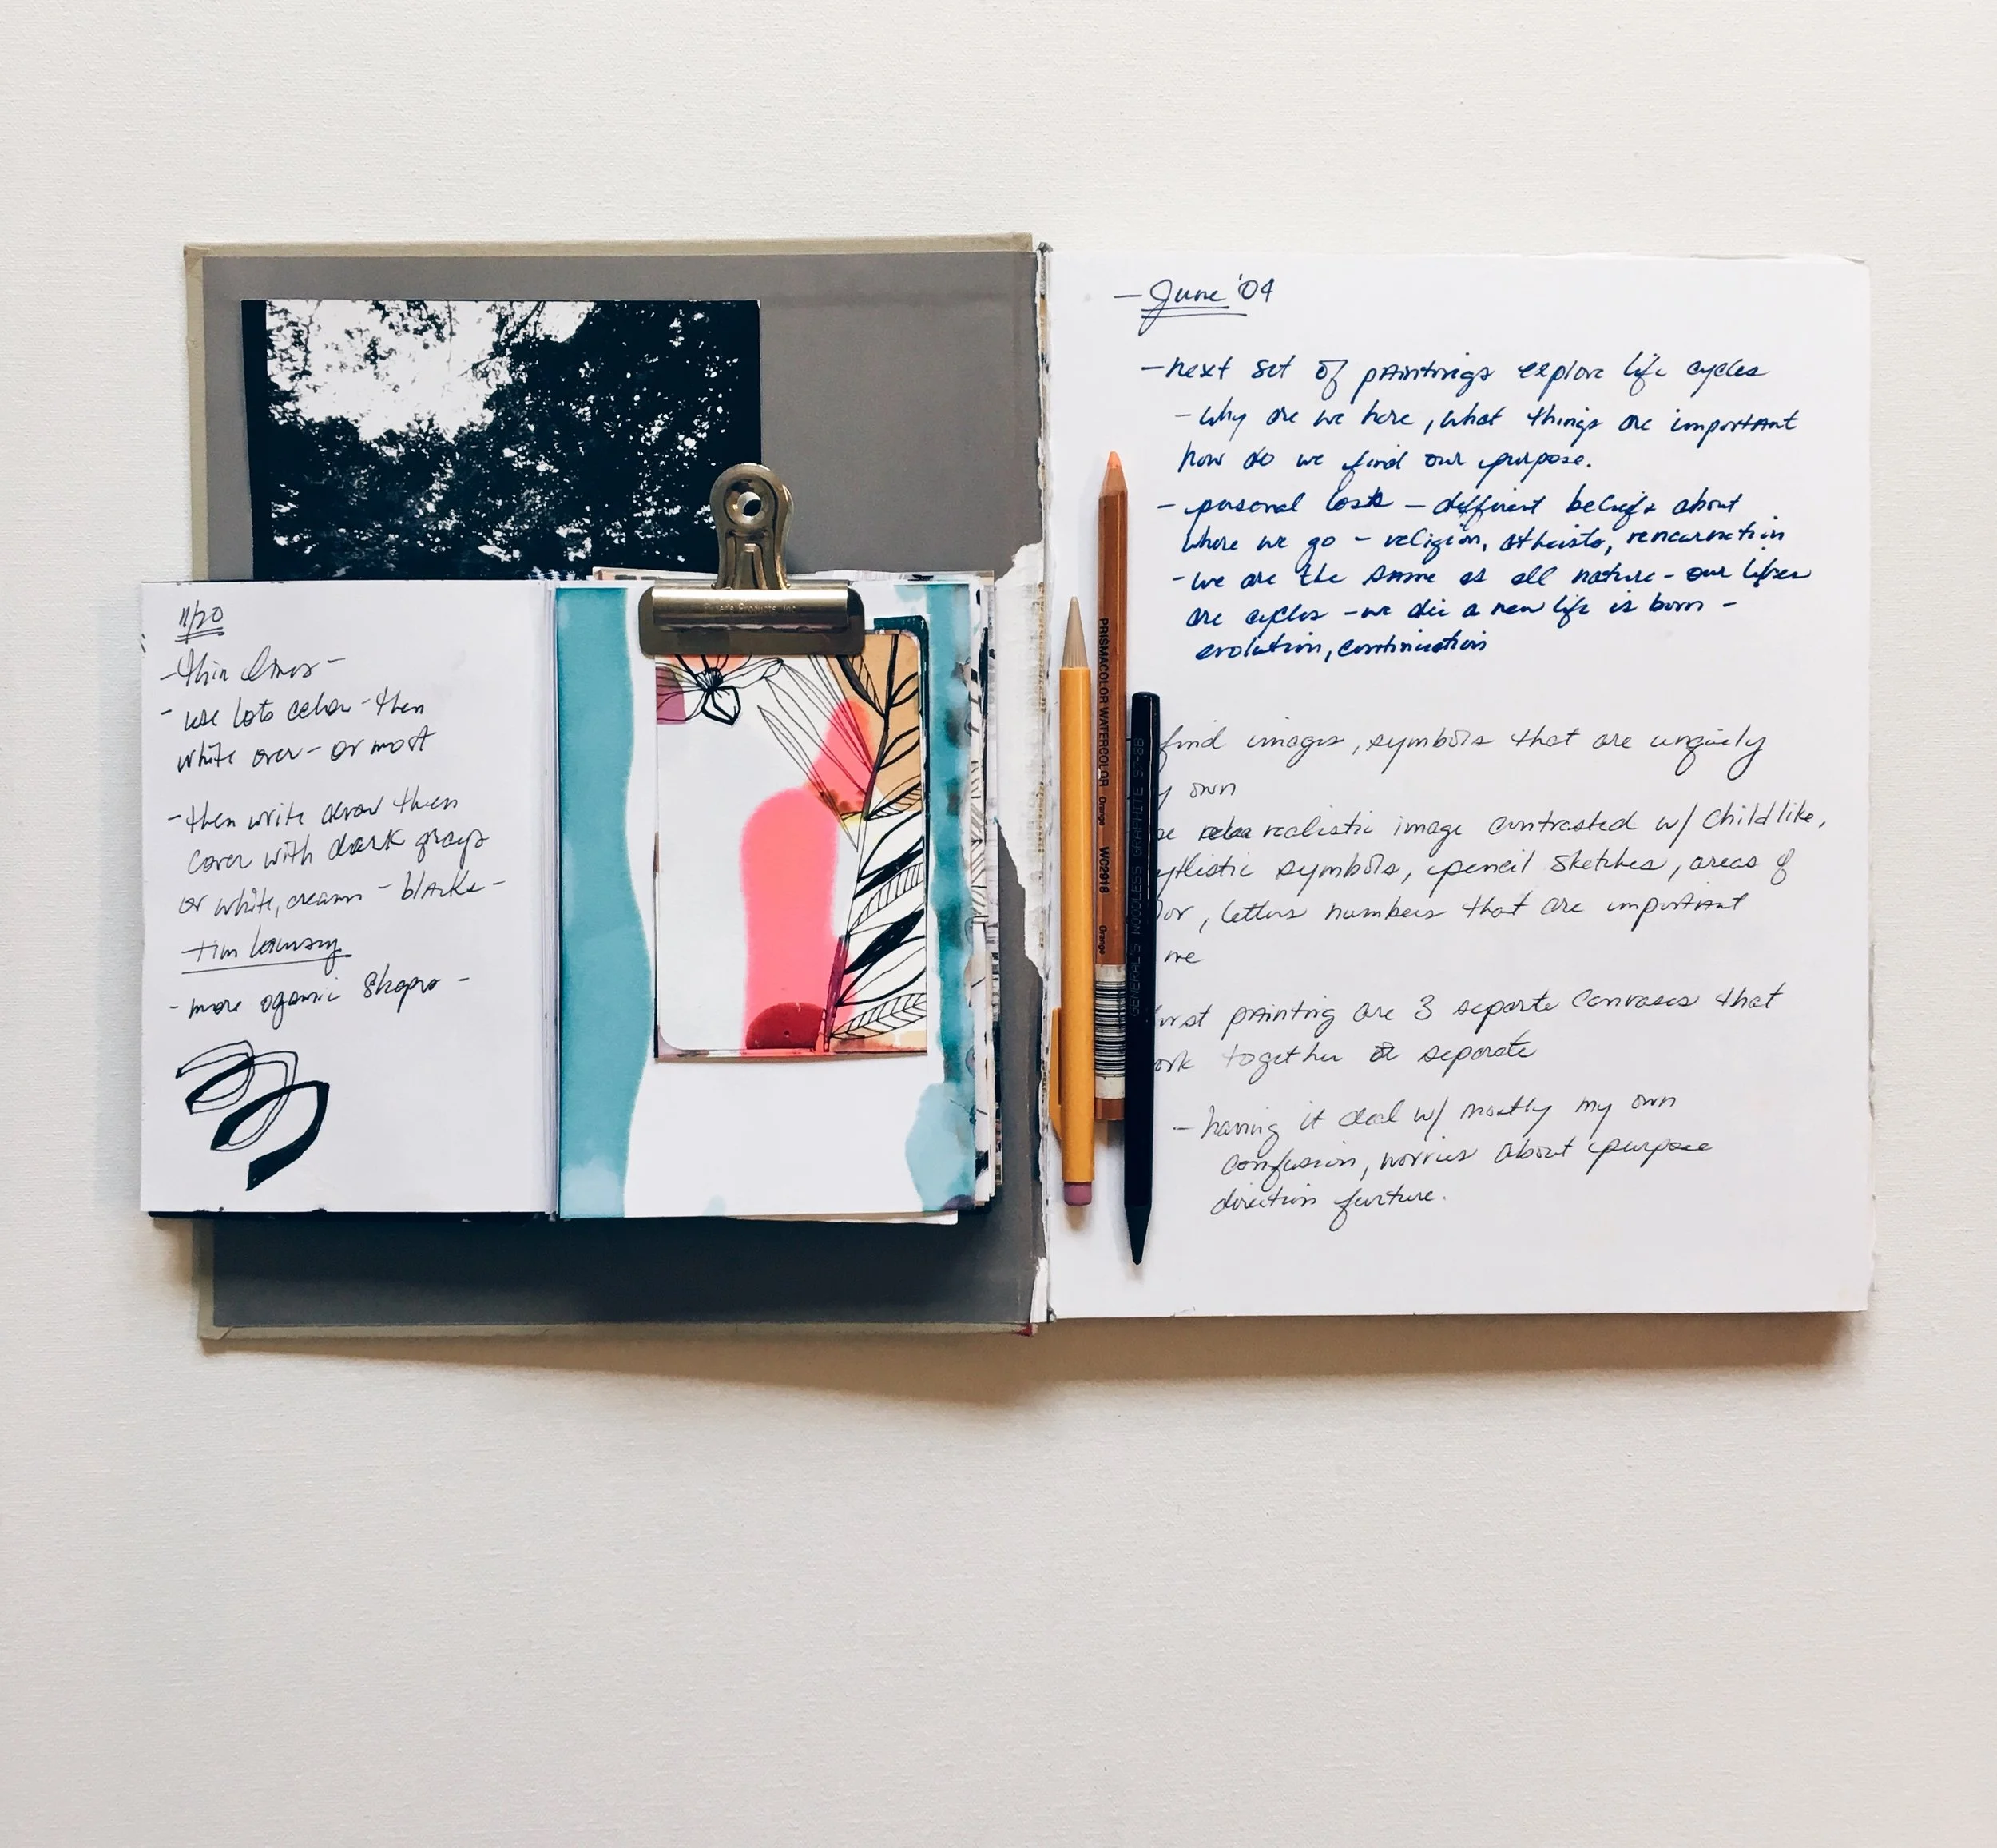 11/20
- thin lines -
- use lots color - then
white over - or most
- then write draw then
cover with dark grays
or white, creams - blacks -
- more oganic shapes -
- June '04
- next set of paintings explore life cycles
- why are we here, what things are important
how do we find our purpose.
- personal losts - different beliefs about
where we go - religion, atheists, reincarnation
- we are the same as all nature - our lifes
are cycles - we die a new life is born -
evolution, continuation
find images, symbols that are unqiuely
own
realistic image contrasted w/ childlike,
symbols, pencil sketches, areas of
, letters numbers that are important
me
painting are 3 separte canvases that
together or separate
- having it deal w/ mostly my own
confusion, worries about purpose
direction furture.
PRISMACOLOR WATERCOLOR Orange WC2918 Orange
GENERAL'S WOODLESS GRAPHITE